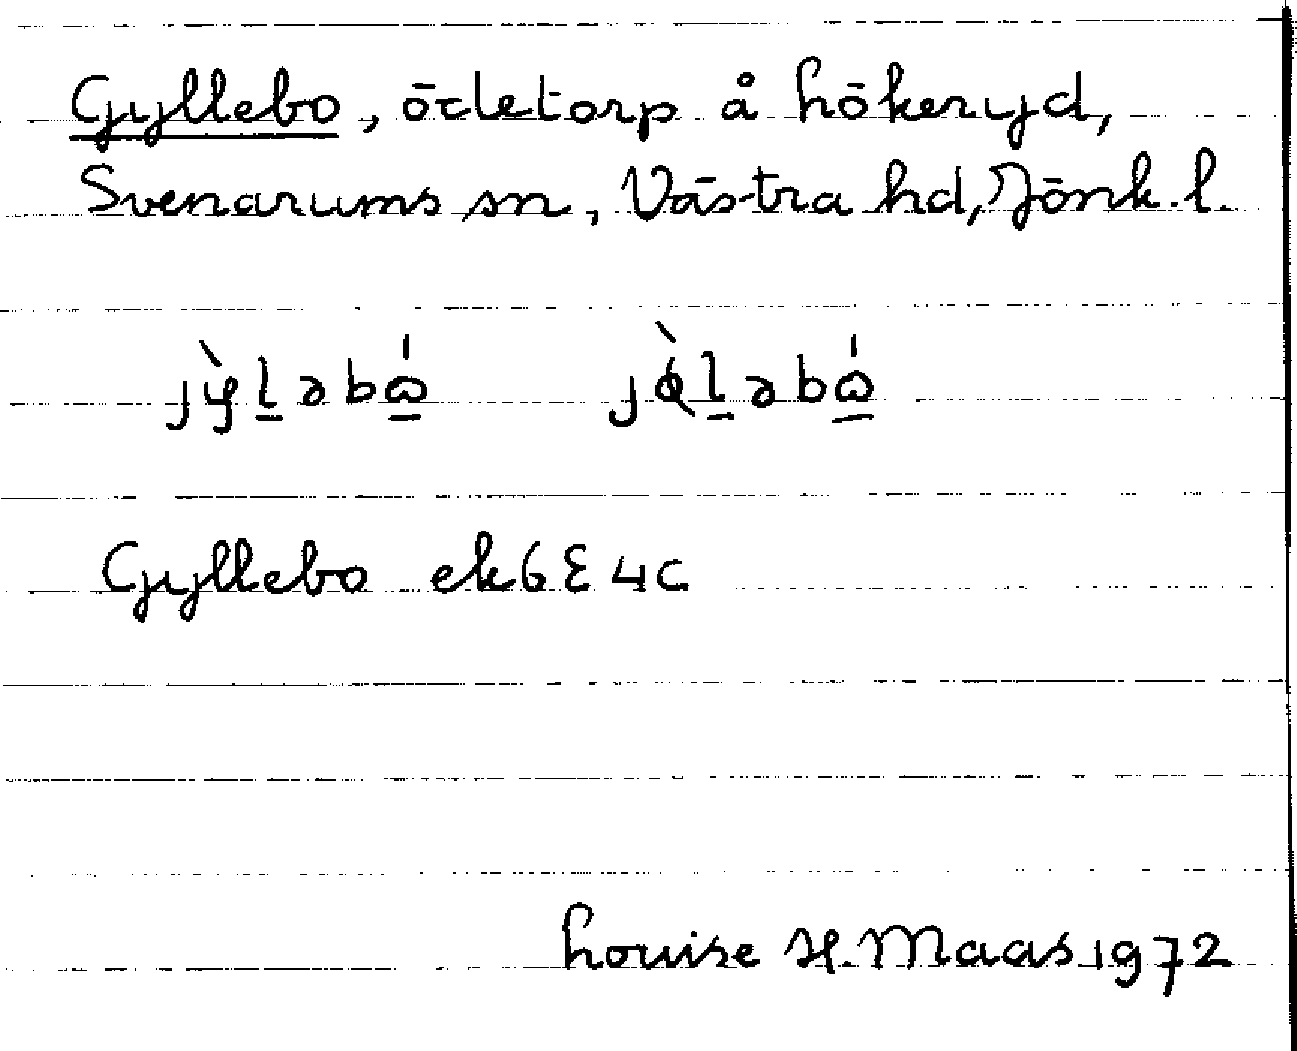 Gyllebo, ödetorp å Lökeryd,
Svenarums sn, Västra hd, Jönk. l.
jỳl̲əbώ̲ jø̨̀l̲əbώ̲
Gyllebo ek 6E 4c
Louise H. Maas 1972